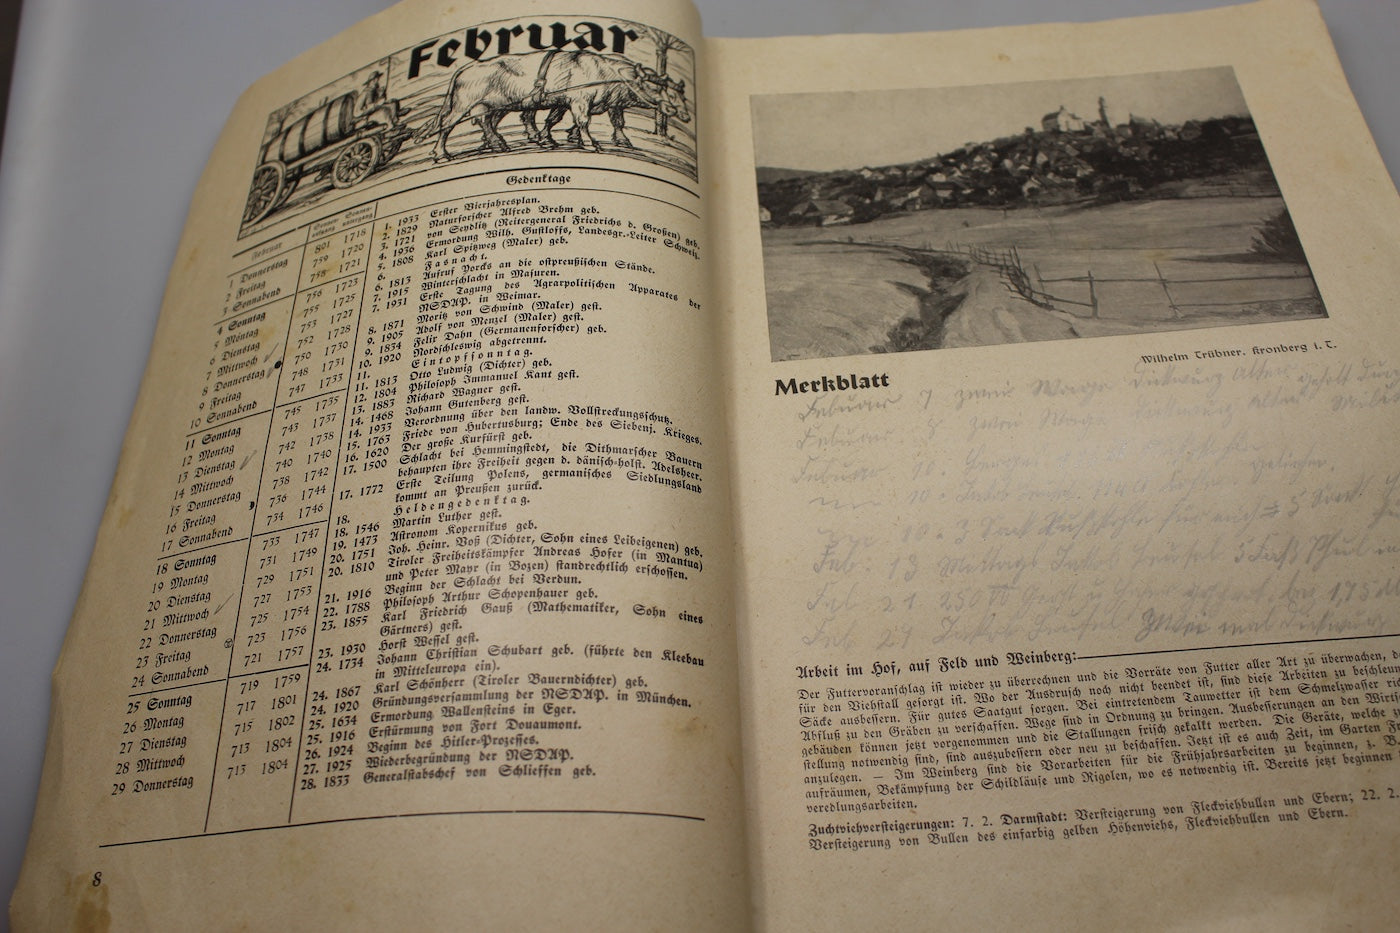 Februar
Gedenktage
Februar
Sonnen-aufgang
Sonnen-untergang
1 Donnerstag 801 1718
2 Freitag 759 1720
3 Sonnabend 758 1721
4 Sonntag 756 1723
5 Montag 755 1725
6 Dienstag 753 1727
7 Mittwoch 752 1728
8 Donnerstag 750 1730
9 Freitag 748 1731
10 Sonnabend 747 1733
11 Sonntag 745 1735
12 Montag 743 1737
13 Dienstag 742 1738
14 Mittwoch 740 1740
15 Donnerstag 738 1742
16 Freitag 736 1744
17 Sonnabend 734 1746
18 Sonntag 733 1747
19 Montag 731 1749
20 Dienstag 729 1751
21 Mittwoch 727 1753
22 Donnerstag 725 1754
23 Freitag 723 1756
24 Sonnabend 721 1757
25 Sonntag 719 1759
26 Montag 717 1801
27 Dienstag 715 1802
28 Mittwoch 713 1804
29 Donnerstag 713 1804
1. 1933 Erster Vierjahresplan.
2. 1829 Naturforscher Alfred Brehm geb.
3. 1721 von Seydlitz (Reitergeneral Friedrichs d. Großen) geb.
4. 1936 Ermordung Wilh. Gustloffs, Landesgr.-Leiter Schweiz.
5. 1808 Karl Spitzweg (Maler) geb.
6. Fasnacht.
6. 1813 Aufruf Yorcks an die ostpreußischen Stände.
7. 1915 Winterschlacht in Masuren.
7. 1931 Erste Tagung des Agrarpolitischen Apparates der
NSDAP. in Weimar.
8. 1871 Moritz von Schwind (Maler) gest.
9. 1905 Adolf von Menzel (Maler) gest.
9. 1834 Felix Dahn (Germanenforscher) geb.
10. 1920 Nordschleswig abgetrennt.
11. Eintopfsonntag.
11. 1813 Otto Ludwig (Dichter) geb.
12. 1804 Philosoph Immanuel Kant gest.
13. 1883 Richard Wagner gest.
14. 1468 Johann Gutenberg gest.
14. 1933 Verordnung über den landw. Vollstreckungsschutz.
15. 1763 Friede von Hubertusburg; Ende des Siebenj. Krieges.
16. 1620 Der große Kurfürst geb.
17. 1500 Schlacht bei Hemmingstedt, die Dithmarscher Bauern
behaupten ihre Freiheit gegen d. dänisch-holst. Adelsheer.
17. 1772 Erste Teilung Polens, germanisches Siedlungsland
kommt an Preußen zurück.
18. Heldengedenktag.
18. 1546 Martin Luther gest.
19. 1473 Astronom Kopernikus geb.
20. 1751 Joh. Heinr. Voß (Dichter, Sohn eines Leibeigenen) geb.
20. 1810 Tiroler Freiheitskämpfer Andreas Hofer (in Mantua)
und Peter Mayr (in Bozen) standrechtlich erschossen.
21. 1916 Beginn der Schlacht bei Verdun.
22. 1788 Philosoph Arthur Schopenhauer geb.
23. 1855 Karl Friedrich Gauß (Mathematiker, Sohn eines
Gärtners) gest.
23. 1930 Horst Wessel gest.
24. 1734 Johann Christian Schubart geb. (führte den Kleebau
in Mitteleuropa ein).
24. 1867 Karl Schönherr (Tiroler Bauerndichter) geb.
24. 1920 Gründungsversammlung der NSDAP. in München.
25. 1634 Ermordung Wallensteins in Eger.
25. 1916 Erstürmung von Fort Douaumont.
26. 1924 Beginn des Hitler-Prozesses.
27. 1925 Wiederbegründung der NSDAP.
28. 1833 Generalstabschef von Schlieffen geb.
8
Wilhelm Trübner. Kronberg i. T.
Merkblatt
Februar 7 zwei Wagen Dickwurz
Februar 8. zwei Wagen
Februar 10.
10.
10. 3 Sack
Feb. 13 Mittags 5 Faß
Feb. 21. 250 1,75
Feb. 27 mal
Arbeit im Hof, auf Feld und Weinberg:
Der Futtervoranschlag ist wieder zu überrechnen und die Vorräte von Futter aller Art zu überwachen,
für den Viehstall gesorgt ist. Wo der Ausdrusch noch nicht beendet ist, sind diese Arbeiten zu
Säcke ausbessern. Für gutes Saatgut sorgen. Bei eintretendem Tauwetter ist dem Schmelzwasser
Abfluß zu den Gräben zu verschaffen. Wege sind in Ordnung zu bringen. Ausbesserungen an den
gebäuden können jetzt vorgenommen und die Stallungen frisch gekalkt werden. Die Geräte, welche
stellung notwendig sind, sind auszubessern oder neu zu beschaffen. Jetzt ist es auch Zeit, im Garten
anzulegen. — Im Weinberg sind die Vorarbeiten für die Frühjahrsarbeiten zu beginnen, z. B.
aufräumen, Bekämpfung der Schildläuse und Rigolen, wo es notwendig ist. Bereits jetzt beginnen
veredlungsarbeiten.
Zuchtviehversteigerungen: 7. 2. Darmstadt: Versteigerung von Fleckviehbullen und Ebern; 22. 2.
Versteigerung von Bullen des einfarbig gelben Höhenviehs, Fleckviehbullen und Ebern.